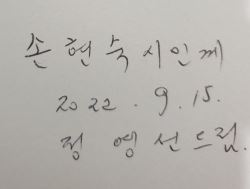 손현숙시인께
2022. 9. 15.
정영선드림.